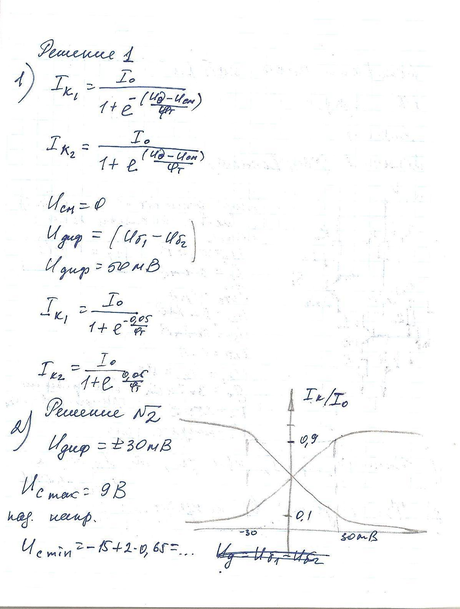 Решение 1
1) I_K₁ = I₀ / (1 + e^(-(Uд - Uсм)/φт))
I_K₂ = I₀ / (1 + e^((Uд - Uсм)/φт))
Uсм = 0
Uдиф = (Uб₁ - Uб₂)
Uдиф = 50 мВ
I_K₁ = I₀ / (1 + e^(-0,05/φт))
I_K₂ = I₀ / (1 + e^(0,05/φт))
2) Решение №2
Uдиф = ±30 мВ
Uc max = 9 В
Uc min = -15 + 2·0,65 = ...
I_K/I₀
0,9
0,1
-30
30 мВ
Uд = Uб₁ - Uб₂